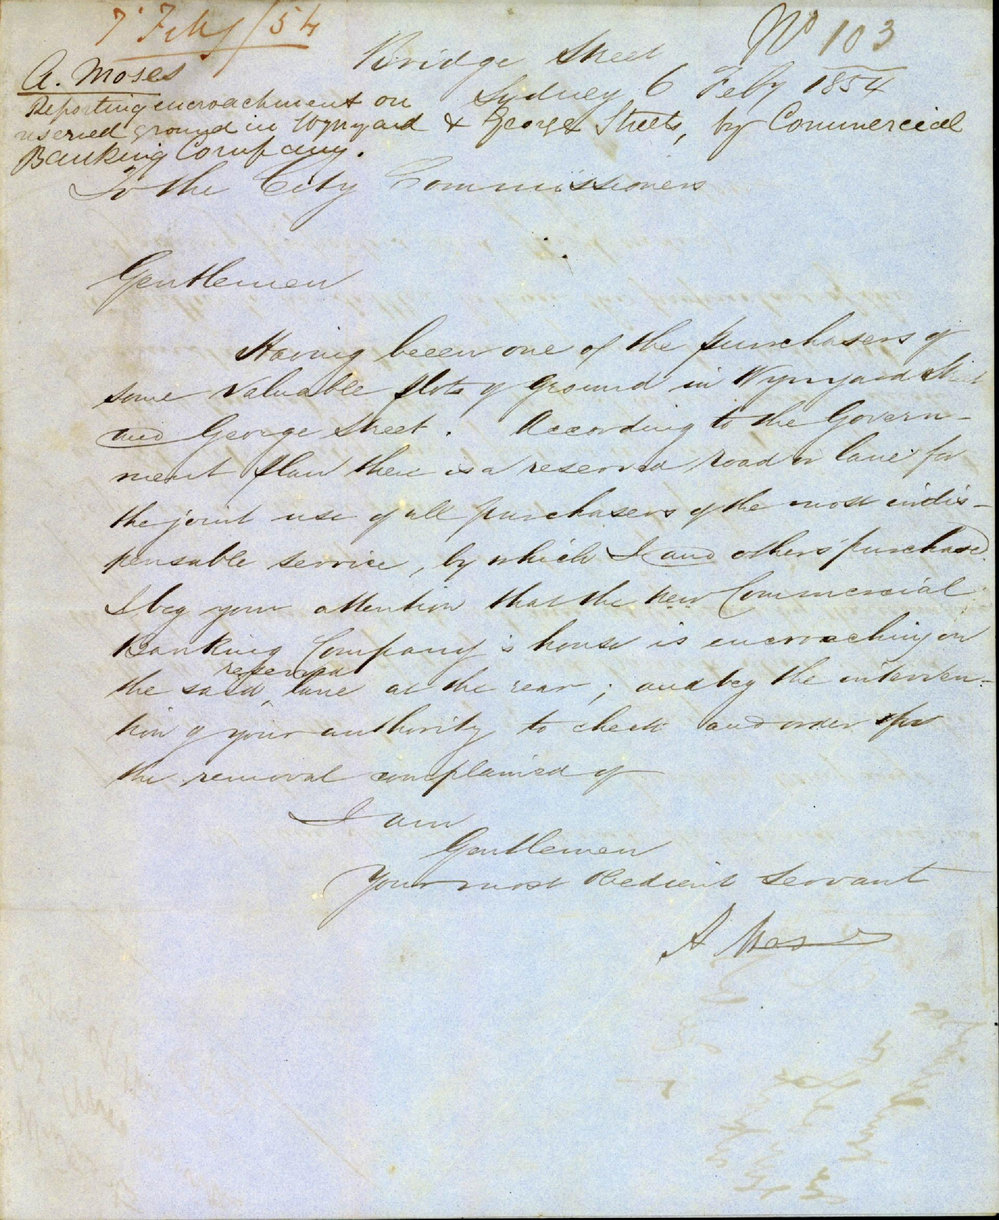 7 Feby/54
No 103
A. Moses
Reporting encroachment on
reserved ground in Wynyard & George Streets, by Commercial
Banking Company.
Bridge Street
Sydney 6 Feby 1854
To the City Commissioners
Gentlemen
Having been one of the purchasers of
some valuable plots of Ground in Wynyard Street
and George Street. According to the Govern-
ment plan there is a reserved road or lane for
the joint use of all purchasers of the most indis-
pensable service, by which I and others purchased.
I beg your attention that the new Commercial
Banking Company's house is encroaching on
the said reserved lane at the rear; and beg the interven-
tion of your authority to check and order for
the removal complained of
I am
Gentlemen
Your most Obedient Servant
A Moses